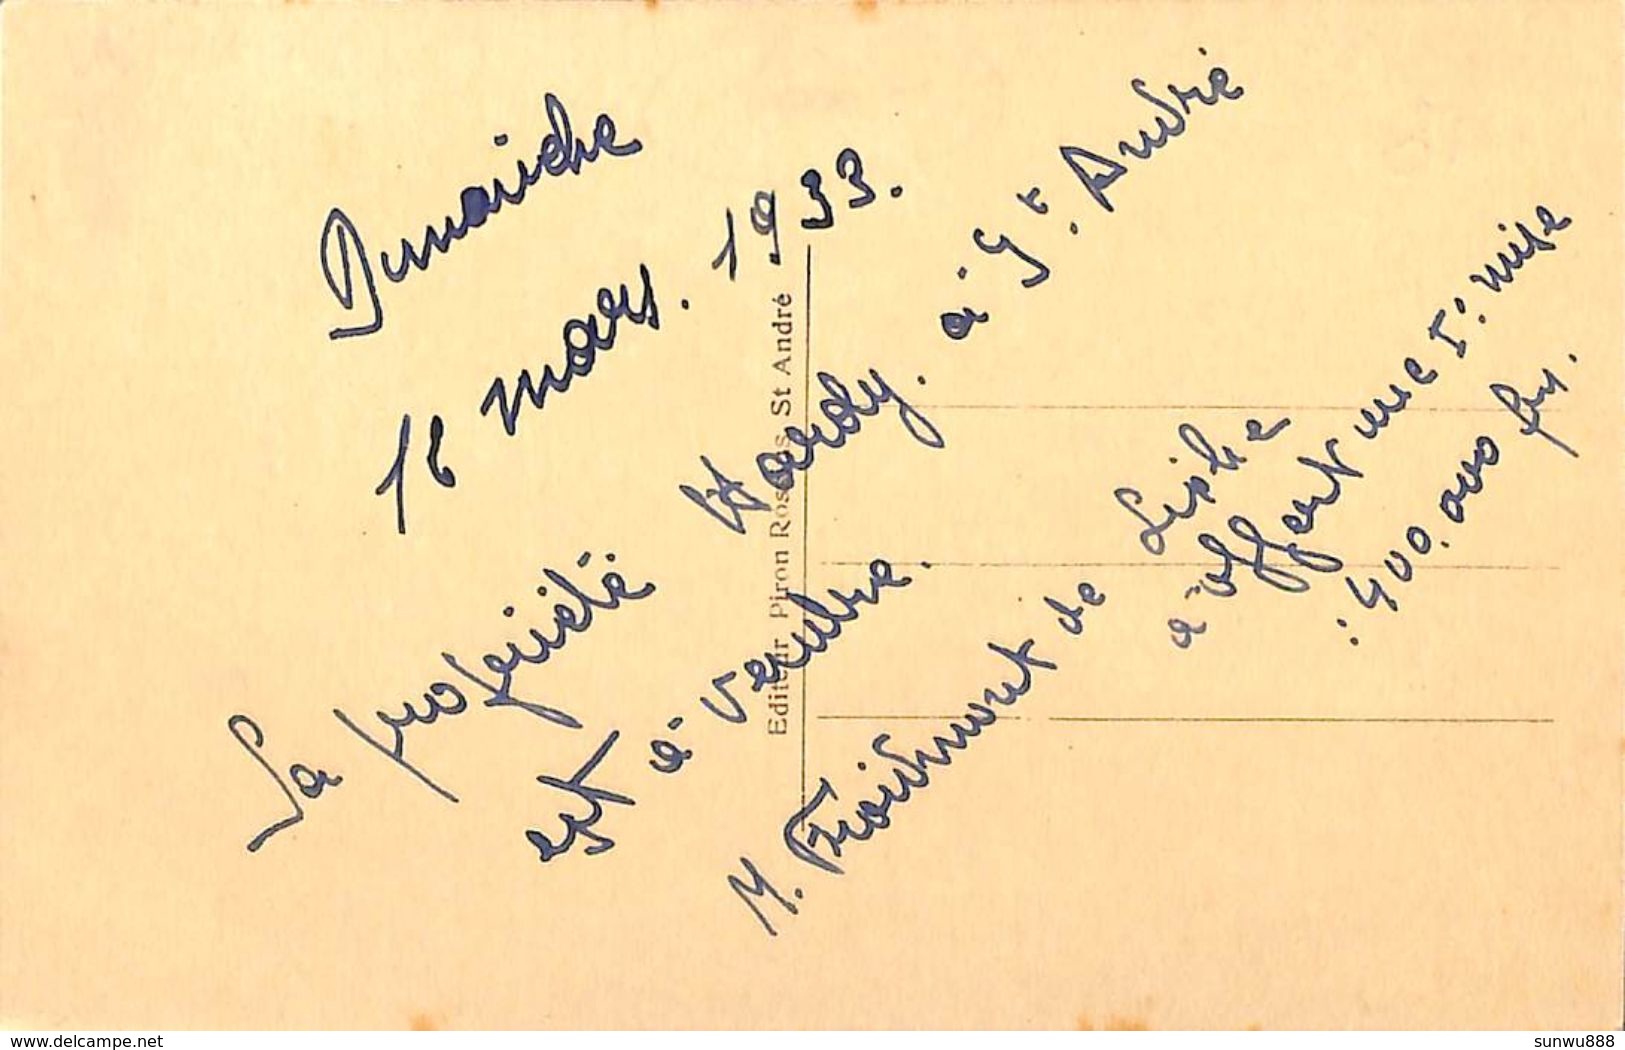 Dimanche
16 mars. 1933.
La propriété Hardy. à St. André
est à vendre.
M. Froidmont de Liske
à offert une I: mise
: 400.000 frs.
Editeur Piron Roskams St André
www.delcampe.net
sunwu888